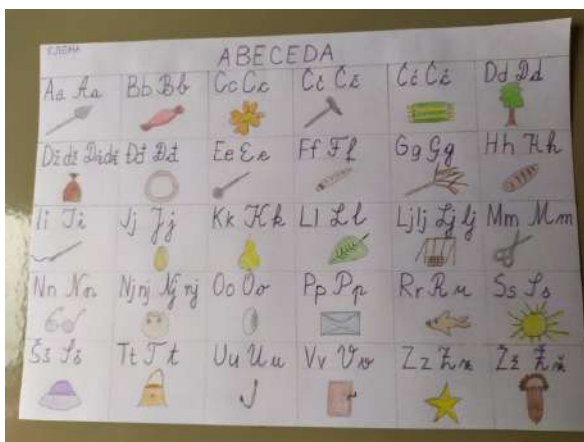 ЕЛЕНА
ABECEDA
Aa Aa Bb Bb Cc Cc Čč Čč Ćć Ćć Dd Dd
Dždž Dždž Đđ Đđ Ee Ee Ff Ff Gg Gg Hh Hh
Ii Ii Jj Jj Kk Kk Ll Ll Ljlj Ljlj Mm Mm
Nn Nn Njnj Njnj Oo Oo Pp Pp Rr Rr Ss Ss
Šš Šš Tt Tt Uu Uu Vv Vv Zz Zz Žž Žž